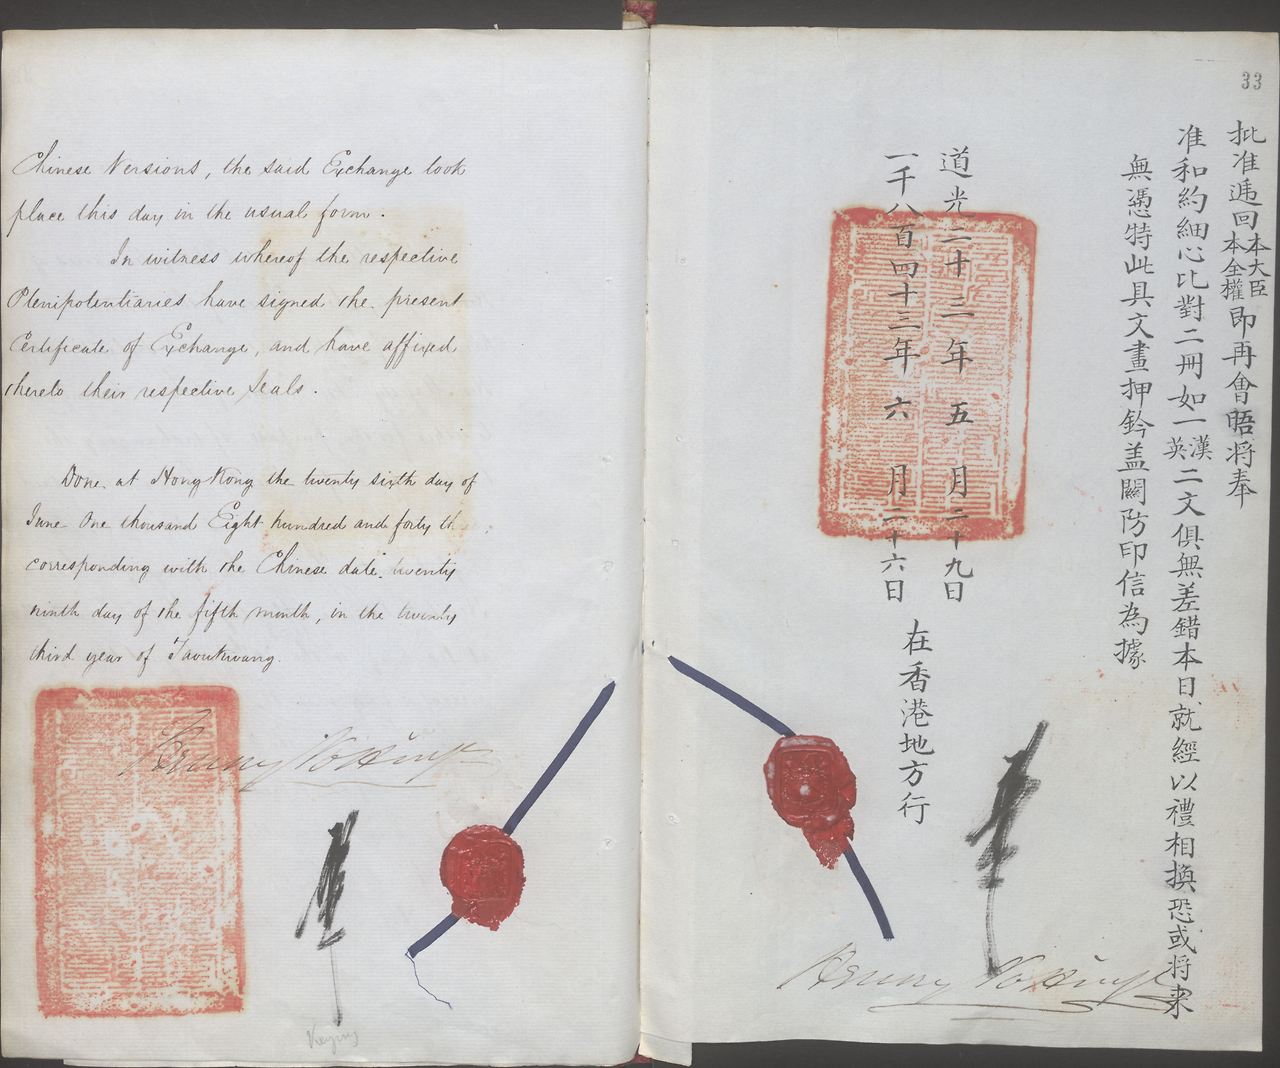 Chinese Versions, the said Exchange took
place this day in the usual form.
In witness whereof the respective
Plenipotentiaries have signed the present
Certificate of Exchange, and have affixed
thereto their respective Seals.
Done at HongKong the twenty sixth day of
June One thousand Eight hundred and forty th
corresponding with the Chinese date twenty
ninth day of the fifth month, in the twenty
third year of Taoukwang.
Henry Pottinger
Keying
33
批准遞回本大臣本全權即再會晤將奉
准和約細心比對二冊如一漢英二文俱無差錯本日就經以禮相換恐或将來
無憑特此具文畫押鈐盖關防印信為據
道光二十三年五月二十九日
一千八百四十三年六月二十六日
在香港地方行
Henry Pottinger